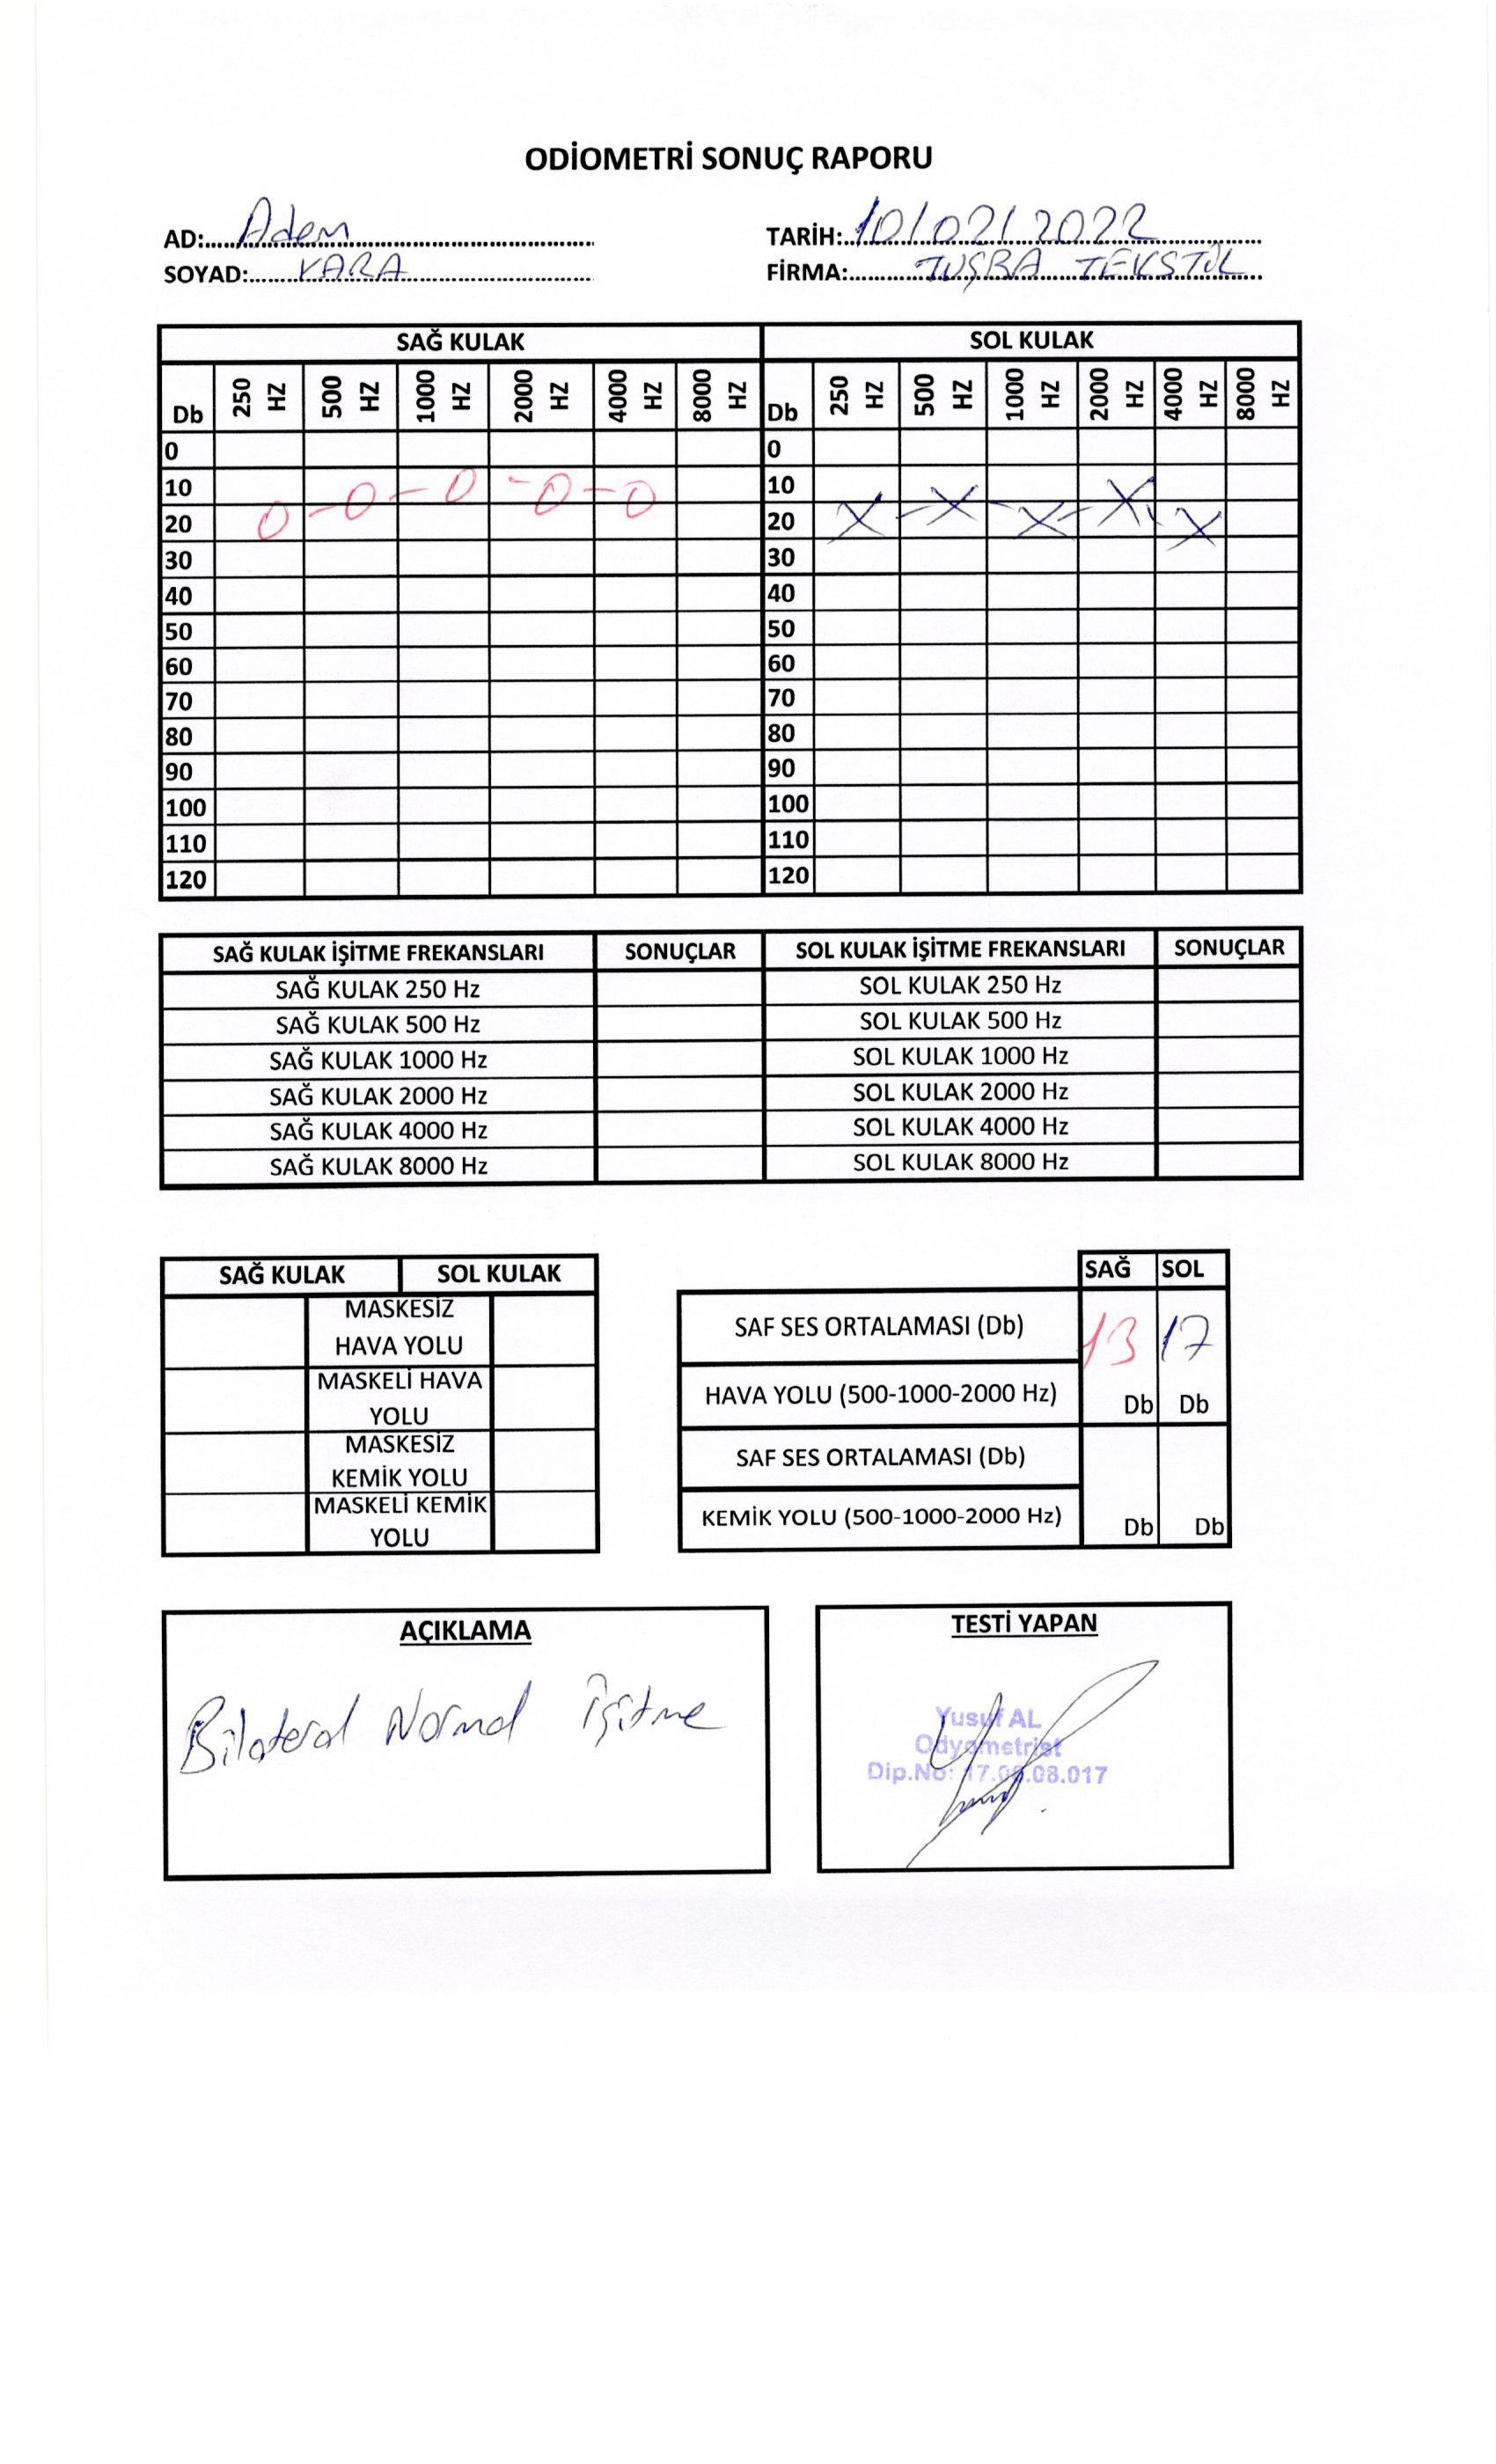 ODİOMETRİ SONUÇ RAPORU
AD: Adem
TARİH: 10/02/2022
SOYAD: KARA
FİRMA: TUŞBA TEKSTİL
SAĞ KULAK SOL KULAK
Db 250 HZ 500 HZ 1000 HZ 2000 HZ 4000 HZ 8000 HZ Db 250 HZ 500 HZ 1000 HZ 2000 HZ 4000 HZ 8000 HZ
0 0
10 10
20 20
30 30
40 40
50 50
60 60
70 70
80 80
90 90
100 100
110 110
120 120
SAĞ KULAK İŞİTME FREKANSLARI SONUÇLAR SOL KULAK İŞİTME FREKANSLARI SONUÇLAR
SAĞ KULAK 250 Hz SOL KULAK 250 Hz
SAĞ KULAK 500 Hz SOL KULAK 500 Hz
SAĞ KULAK 1000 Hz SOL KULAK 1000 Hz
SAĞ KULAK 2000 Hz SOL KULAK 2000 Hz
SAĞ KULAK 4000 Hz SOL KULAK 4000 Hz
SAĞ KULAK 8000 Hz SOL KULAK 8000 Hz
SAĞ KULAK SOL KULAK
MASKESİZ
HAVA YOLU
MASKELİ HAVA
YOLU
MASKESİZ
KEMİK YOLU
MASKELİ KEMİK
YOLU
SAĞ SOL
SAF SES ORTALAMASI (Db) 13 17
HAVA YOLU (500-1000-2000 Hz) Db Db
SAF SES ORTALAMASI (Db)
KEMİK YOLU (500-1000-2000 Hz) Db Db
AÇIKLAMA
Bilateral Normal İşitme
TESTİ YAPAN
Yusuf AL
Odyometrist
Dip.No: